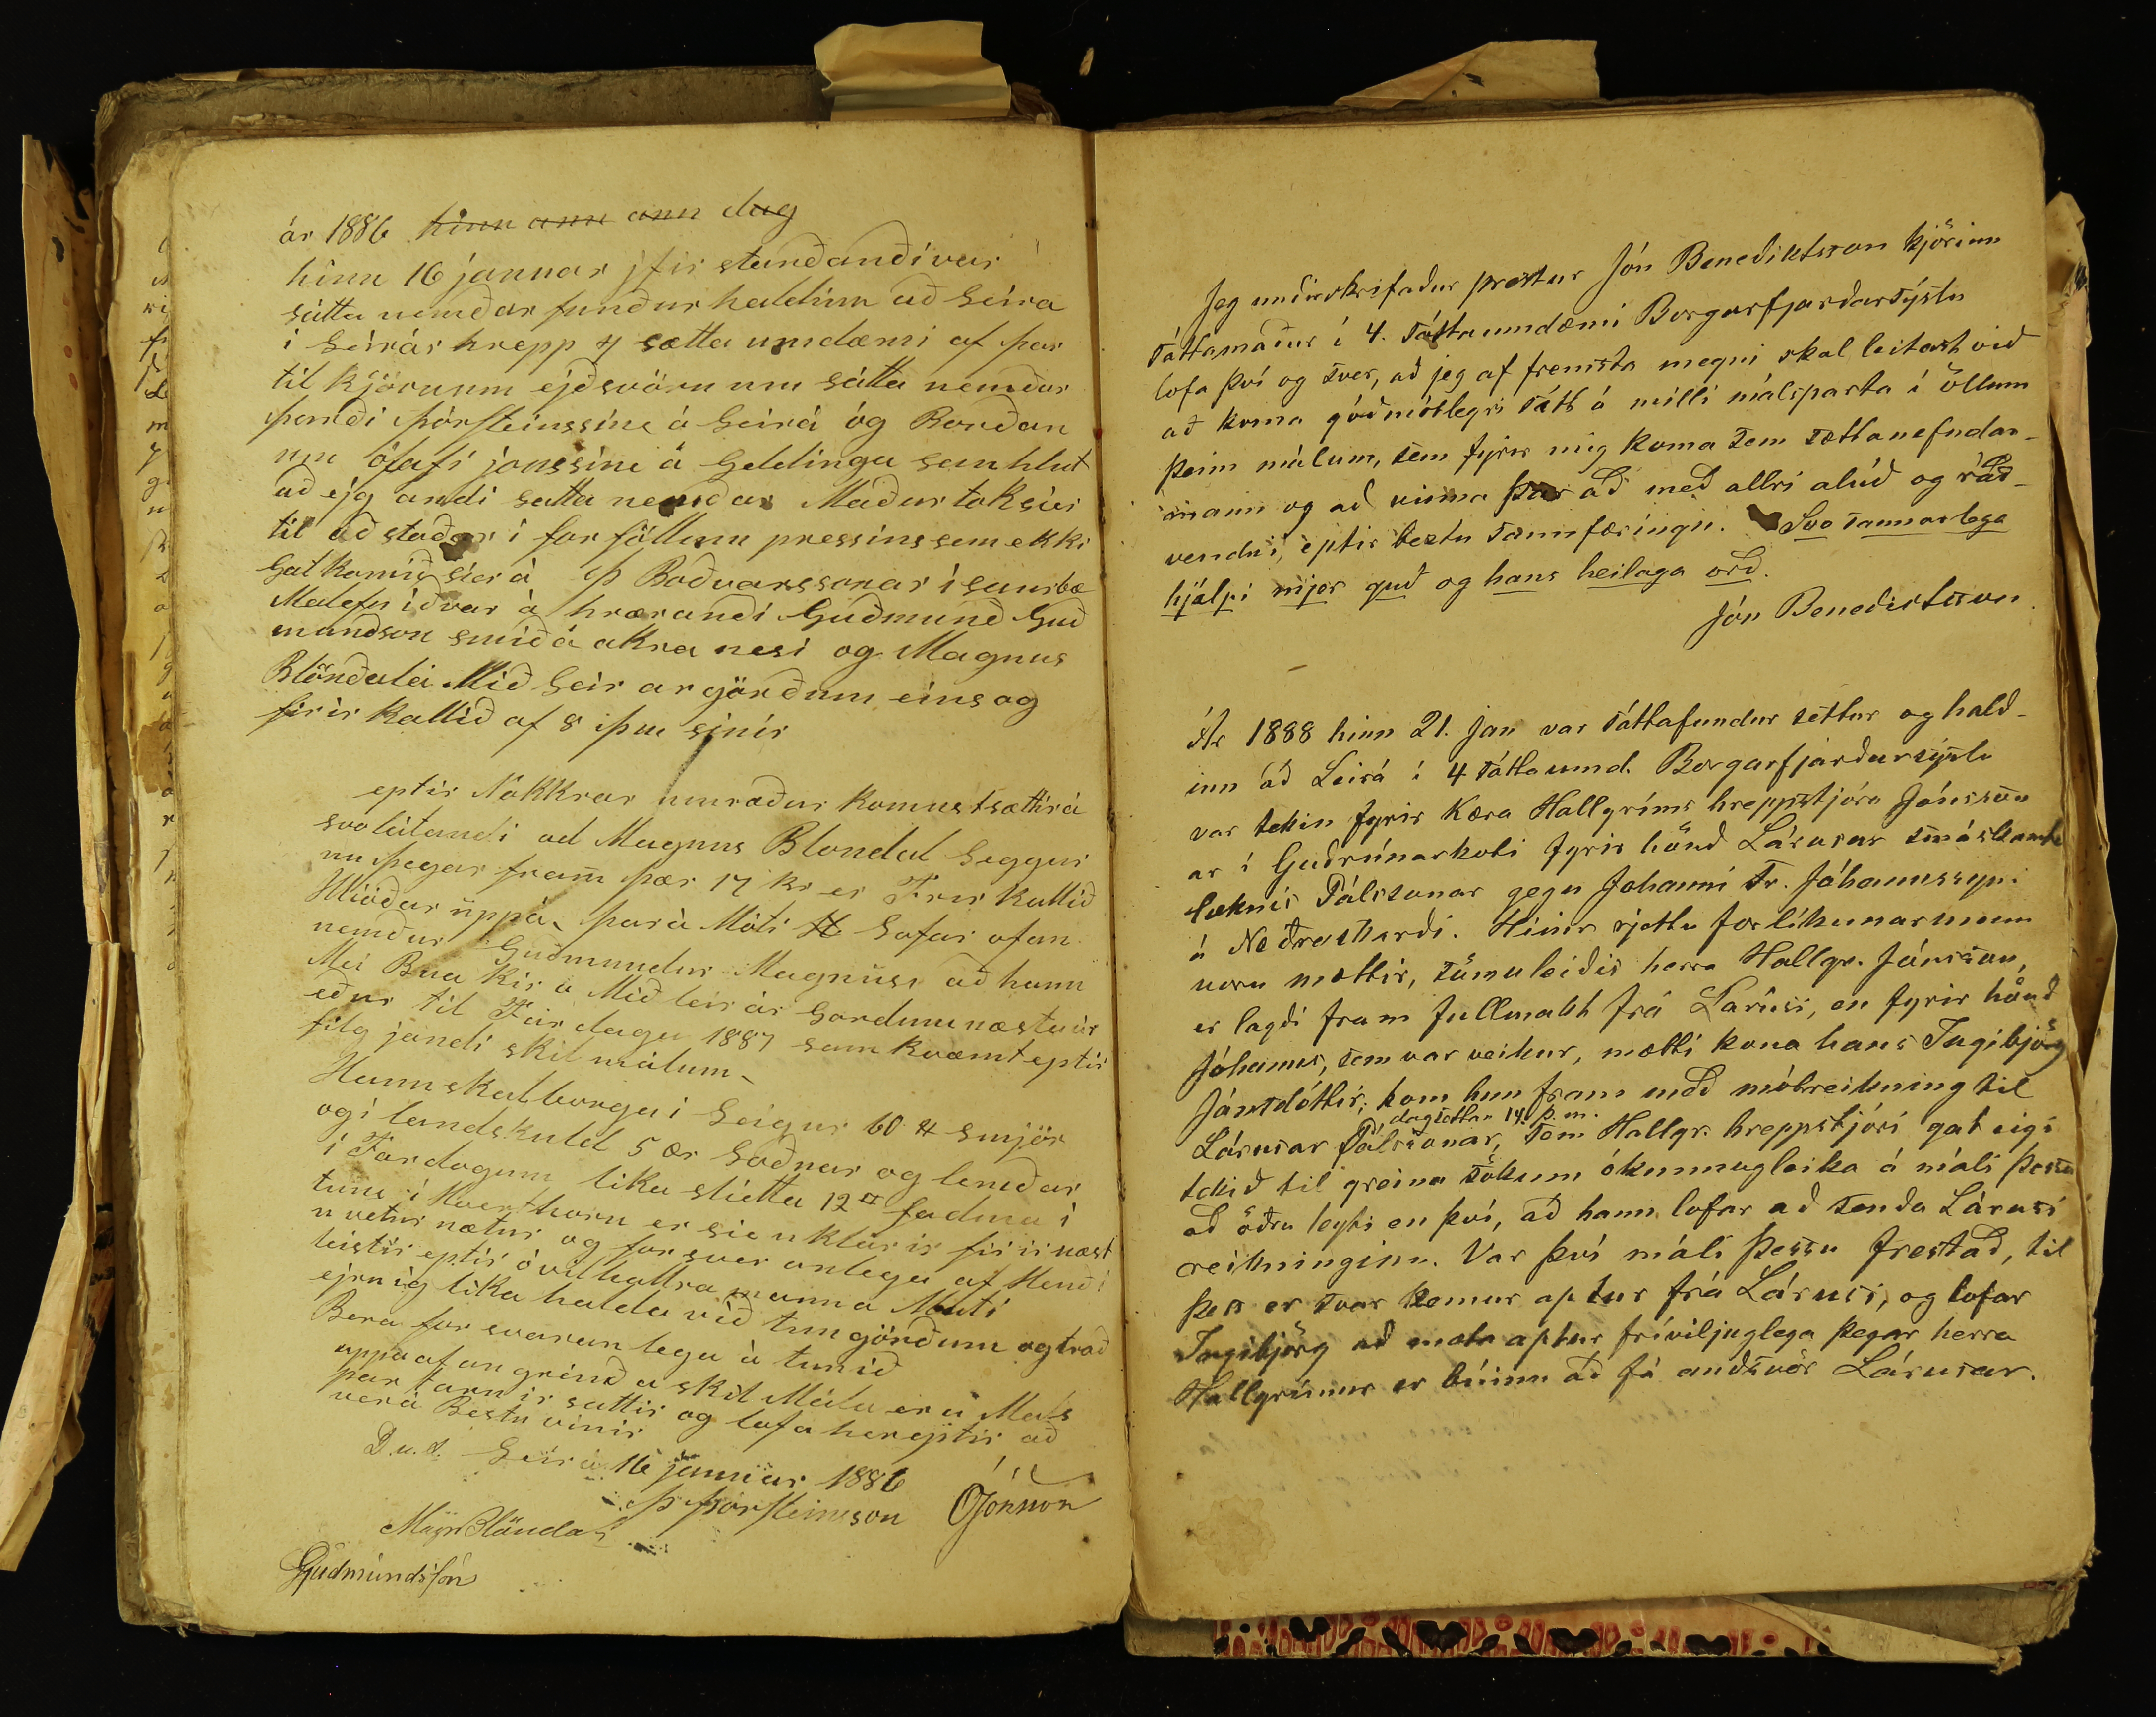 ár 1886 hinn ann ann dag
hinn 16 januar ifir standandi var
sátta nemdar fundur haldinn að Leira
i Leirár hrepp 4 sætta umdæmi af þar
til kjörunum ejðsvörnum sátta nemdar
þórði Þórsteinssine á Leirá og Bondan
um ólafi jonssine á Geldinga
að ejg andi satta nemdar Maður tok sier
til að staðar i forföllum pressins sem ekki
Gat komið sier á Þ Boðvarssonar i saurbæ
Malefn ið var á hrærandi Guðmund Guð
mundson smið á akra nesi og Magnus
Blöndal ei Mið Leir ar görðum eins og
firir kallið af 8 þm sinir
eptir Nökkrar umræður komust sættir á
svolátandi ad Magnus Blondal Leggur
nu þegar fram þær 17 kr er Firir kallið
Hlióðar uppá, þar á Móti Lofar ofan
nemdur Guðmundur Magnúsi að hann
Mei Bua kir á Mið leir ár Gordum næsta ár
eður til Fardaga 1887 samkvæmt eptir
filg jandi skil málum
Hann skal borga i Leigur 60 ℔ smjör
og i landskuld 5 ær Loðnar og lemdar
i Fardogum lika slietta 12 fadma i
tune i er sie uklarir firir næst
u vetur nætur og for svar anlega af Hendi
leistir eptir óvilhallra manna Mati
ejrnig lika halda við tungörðum og trað
Bera for svaran lega á tunið
uppá ofan greind a skil Mála eru Máls
par tarnir sattir og lofa hereptir að
vera Bestu vinir
D.u.s. Leirá 16 januar 1886
Þ Þorsteinsson ÓJónsson
Magn Blöndal
Guðmundsson
Jeg undirskrifaður prestur Jón Benediktsson kjörinn
sáttamaður í 4. sáttaumdæmi Borgarfjarðarsýslu
lofa því og sver, að jeg af fremsta megni skal leitast við
að koma góðmótlegri sátt á milli málsparta í öllum
þeim málum, sem fyrir mig koma sem sáttanefndar-
mann og að vinna þar að með allri alúð og ráð-
vendni, eptir beztu sannfæringu. Svo sannarlega
hjálpi mjer guð og hans heilaga orð.
Jón Benediktsson
Ár 1888 hinn 21. Jan var sáttafundur settur og hald-
inn að Leirá i 4 sáttaumd. Borgarfjarðarsýslu
var tekin fyrir kæra Hallgríms hreppstjóra Jónsson
ar i Guðrúnarkoti fyrir hönd Lárusar smáskamta
læknis Pálssonar gegn Johanni Fr. Jóhannssyni
á Neðraskarði. Hinir rjettu forlíkunarmenn
voru mættir, sömuleiðis herra Hallgr. Jónsson,
er lagði fram fullmakt frá Larusi, en fyrir hönd
Jóhanns, sem var veikur, mætti kona hans Ingibjörg
Jónsdóttir; kom hun fram með mótreikning til
Lárusar Pálssonar, dagsettan 14. þ.m. sem Hallgr. hreppstjóri gat eigi
tekið til greina sökum ókunnugleika á máli þessu
að öðru leyti en því, að hann lofar að senda Lárusi
reikninginn. Var því máli þessu frestað, til
þess er svar kemur aptur frá Lárusi, og lofar
Ingibjörg að mæta aptur fríviljuglega þegar herra
Hallgrímur er búinn að fá andsvör Lárusar.